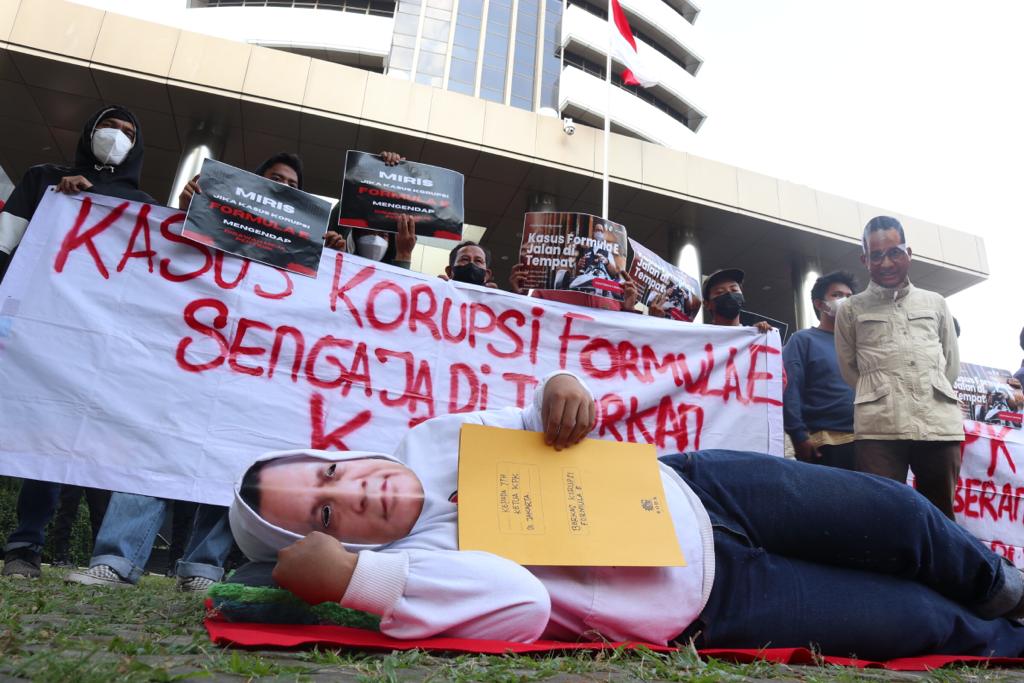 MIRIS
JIKA KASUS KORUPSI
FORMULA E
MENGENDAP
MIRIS
JIKA KASUS KORUPSI
FORMULA E
MENGENDAP
Kasus Formula E
Jalan di
Tempat
Kasus Formula
Jalan di
Tempat
KASUS KORUPSI FORMULA E
SENGAJA Di
Kasus Formula E
Jalan di
Tempat
KEPADA YTH
KETUA KPK
DI JAKARTA
BERKAS KORUPSI
FORMULA E